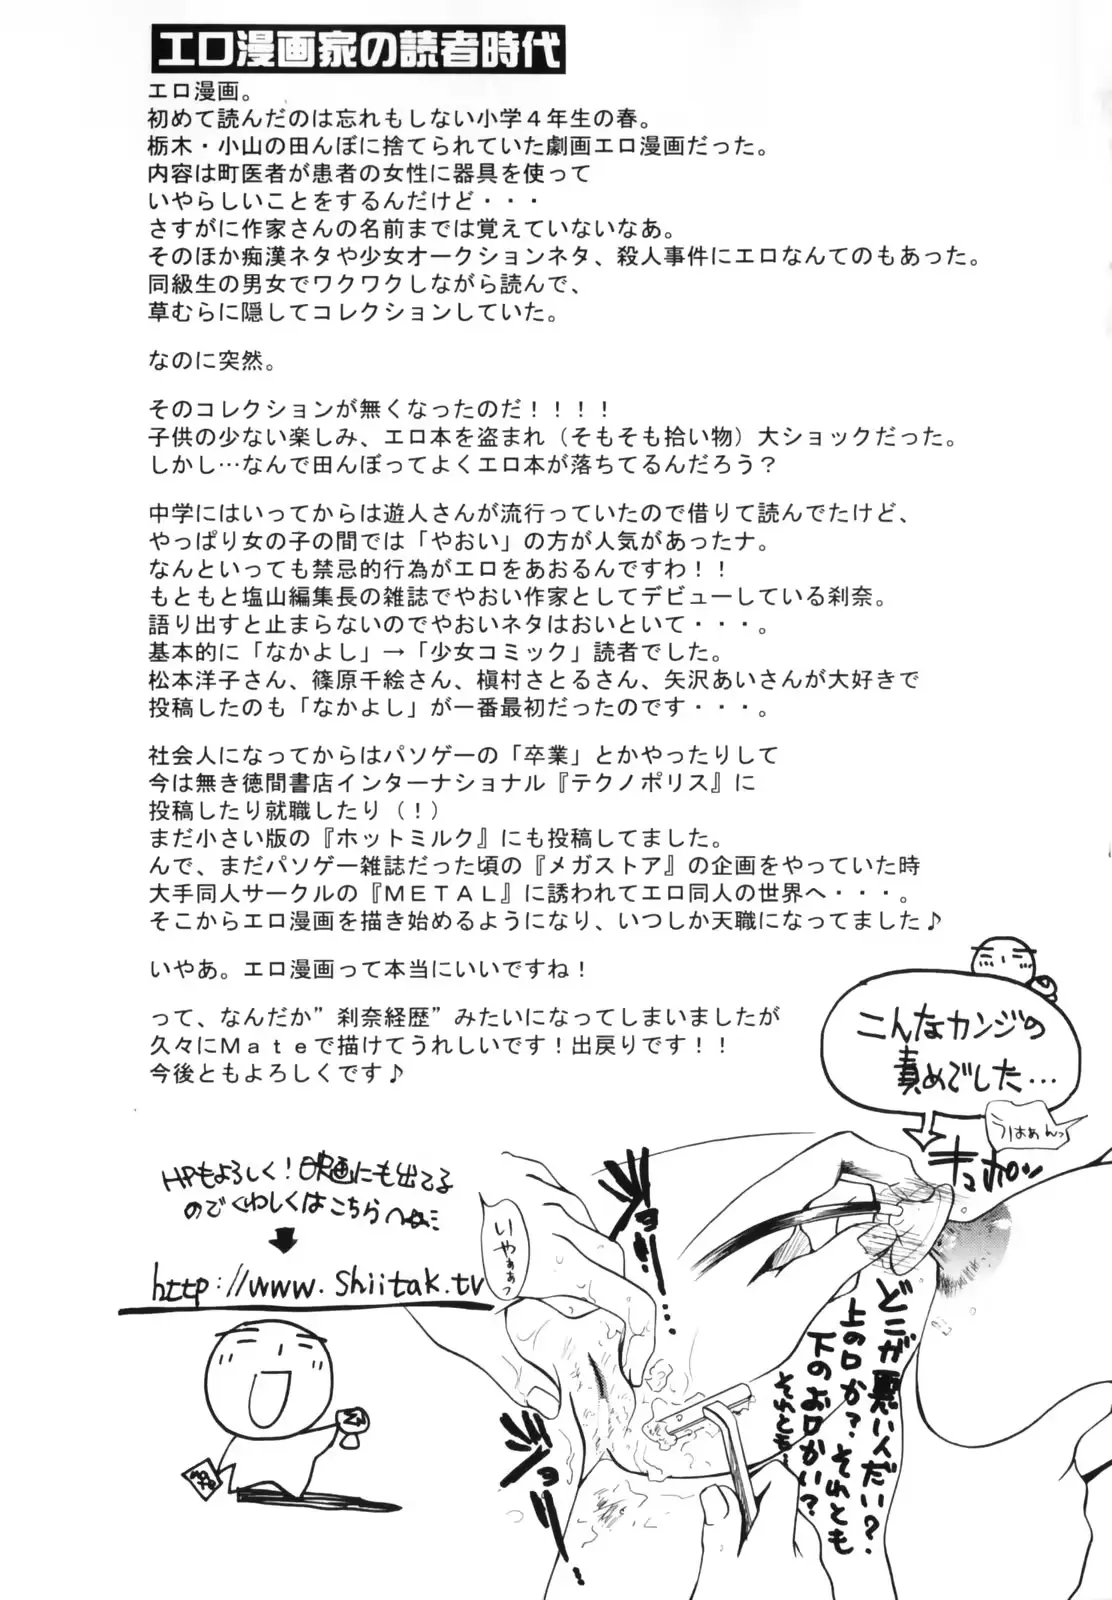 エロ漫画家の読者時代
エロ漫画。
初めて読んだのは忘れもしない小学４年生の春。
栃木・小山の田んぼに捨てられていた劇画エロ漫画だった。
内容は町医者が患者の女性に器具を使って
いやらしいことをするんだけど・・・
さすがに作家さんの名前までは覚えていないなあ。
そのほか痴漢ネタや少女オークションネタ、殺人事件にエロなんてのもあった。
同級生の男女でワクワクしながら読んで、
草むらに隠してコレクションしていた。
なのに突然。
そのコレクションが無くなったのだ！！！！
子供の少ない楽しみ、エロ本を盗まれ（そもそも拾い物）大ショックだった。
しかし…なんで田んぼってよくエロ本が落ちてるんだろう？
中学にはいってからは遊人さんが流行っていたので借りて読んでたけど、
やっぱり女の子の間では「やおい」の方が人気があったナ。
なんといっても禁忌的行為がエロをあおるんですわ！！
もともと塩山編集長の雑誌でやおい作家としてデビューしている刹奈。
語り出すと止まらないのでやおいネタはおいといて・・・。
基本的に「なかよし」→「少女コミック」読者でした。
松本洋子さん、篠原千絵さん、槇村さとるさん、矢沢あいさんが大好きで
投稿したのも「なかよし」が一番最初だったのです・・・。
社会人になってからはパソゲーの「卒業」とかやったりして
今は無き徳間書店インターナショナル『テクノポリス』に
投稿したり就職したり（！）
まだ小さい版の『ホットミルク』にも投稿してました。
んで、まだパソゲー雑誌だった頃の『メガストア』の企画をやっていた時
大手同人サークルの『ＭＥＴＡＬ』に誘われてエロ同人の世界へ・・・。
そこからエロ漫画を描き始めるようになり、いつしか天職になってました♪
いやあ。エロ漫画って本当にいいですね！
って、なんだか”刹奈経歴”みたいになってしまいましたが
久々にＭａｔｅで描けてうれしいです！出戻りです！！
今後ともよろしくです♪
こんなカンジの
責めでした…
うはぁんっ
キュポッ
HPもよろしく！映画にも出てる
のでくわしくはこちらへぬ…
http://www.shiitak.tv
いやぁぁっ
どこが悪いんだい？
上の口か？それとも
下のお口かい？
それとも…